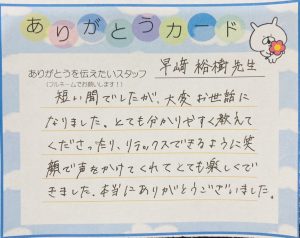 ありがとうカード
早崎 裕樹先生
ありがとうを伝えたいスタッフ
(フルネームでお願いします!!)
短い間でしたが、大変お世話に
なりました。とても分かりやすく教えて
くださったり、リラックスできるように笑
顔で声をかけてくれてとても楽しくで
きました。本当にありがとうございました。